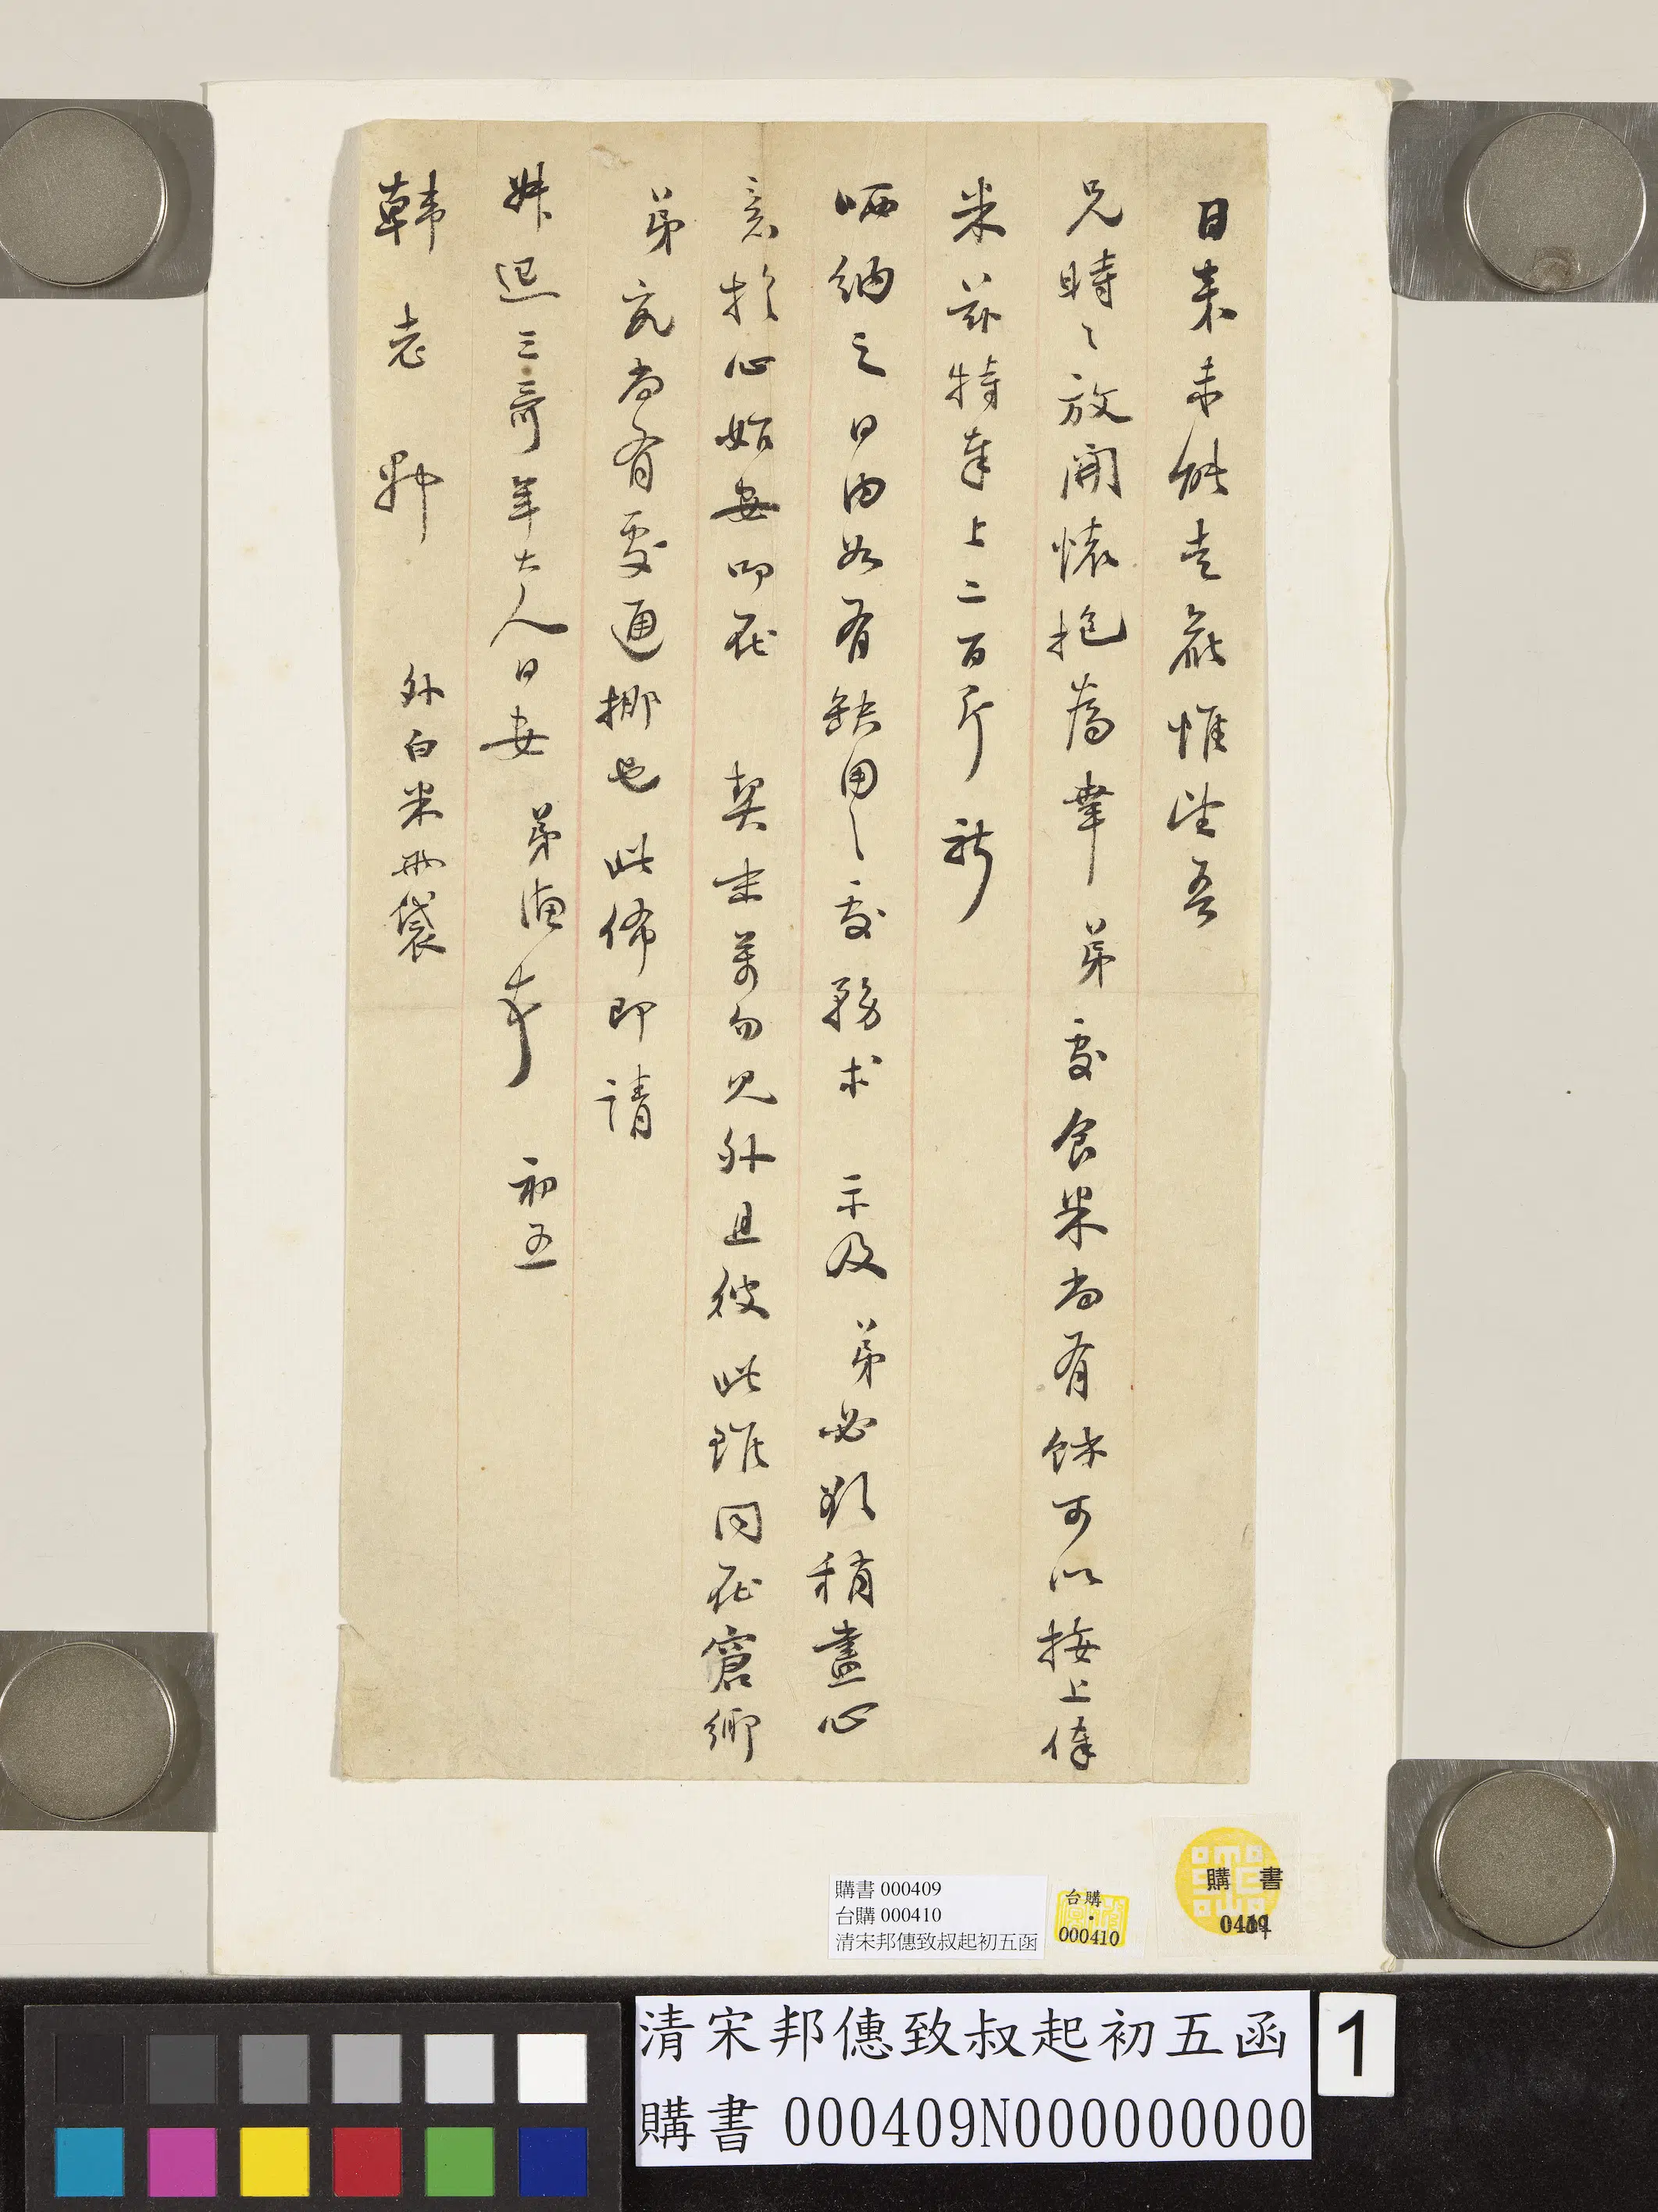 日來未能走晤惟望吾
兄時時放開懷抱為幸弟處食米尚有餘可以接上俸
米茲特奉上二百斤祈
哂納之日內如有缺用之處務求 示及弟必略稍盡心
意於心始安叩在 契末萬勿見外且彼此雖同在窘鄉
弟究尚有處通挪也此佈即請
叔起三哥年大人日安 弟僡 初五
韓老 外白米兩袋
購書 000409
台購 000410
清宋邦僡致叔起初五函
台購
000410
購書
清宋邦僡致叔起初五函
1
購書 000409N000000000